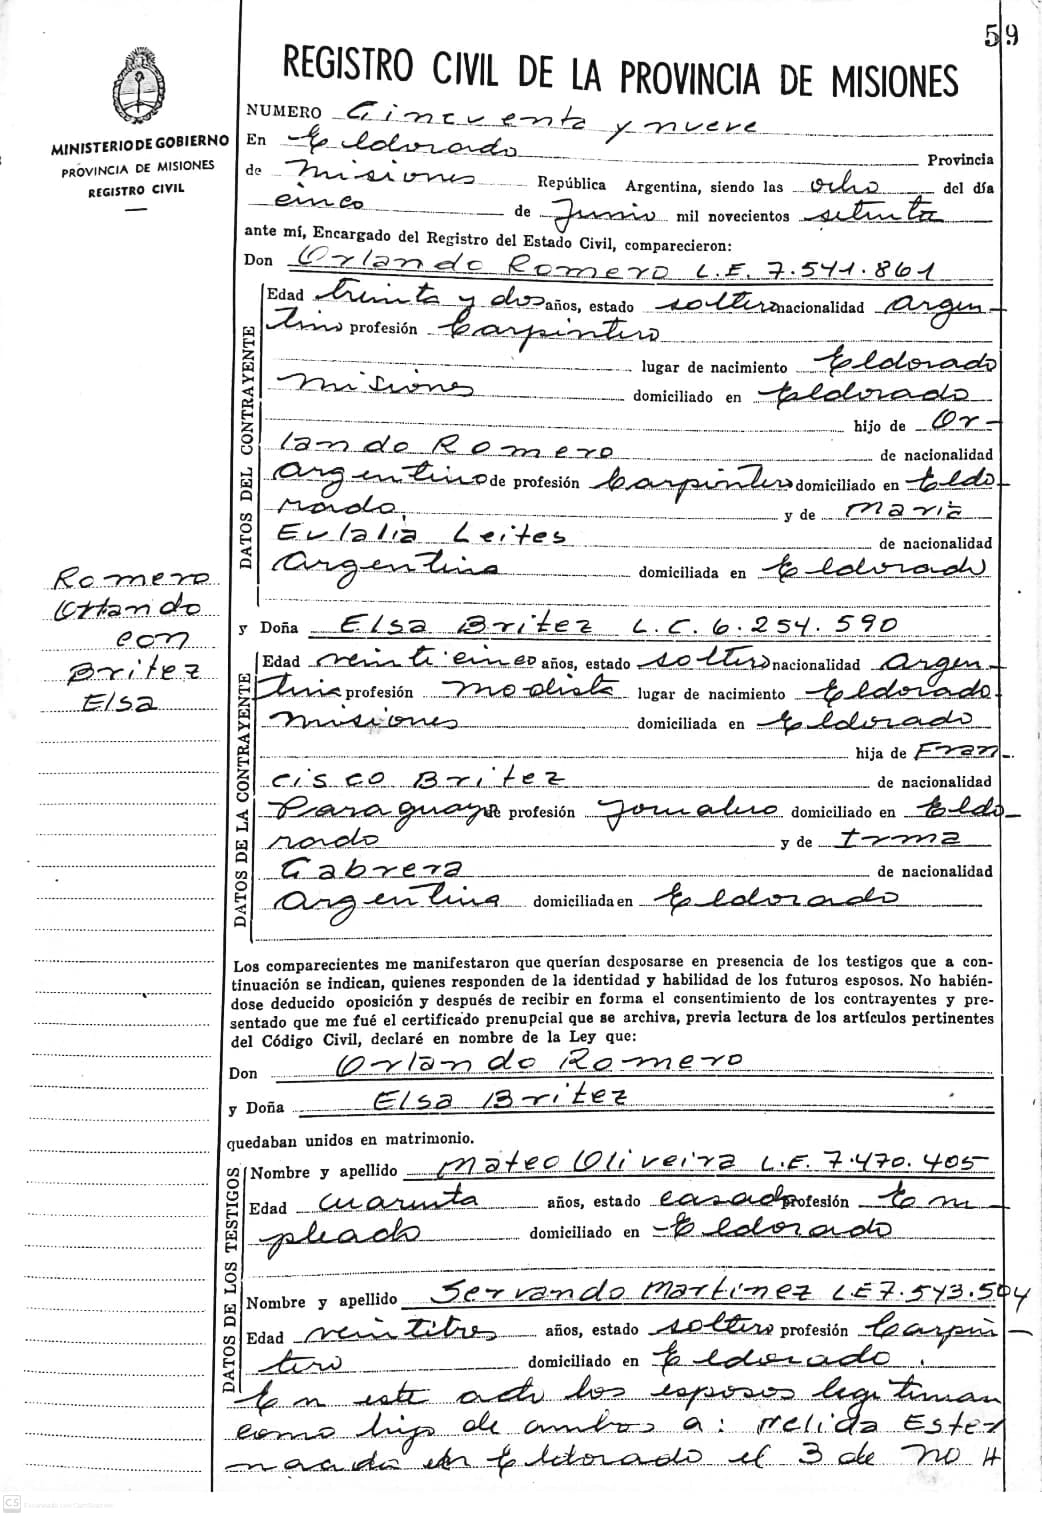 59
REGISTRO CIVIL DE LA PROVINCIA DE MISIONES
MINISTERIO DE GOBIERNO
PROVINCIA DE MISIONES
REGISTRO CIVIL
NUMERO Cincuenta y nueve
En Eldorado Provincia
de Misiones República Argentina, siendo las ocho del día
cinco de Junio mil novecientos setenta
ante mí, Encargado del Registro del Estado Civil, comparecieron:
Don Orlando Romero L.E. 7.541.861
DATOS DEL CONTRAYENTE
Edad treinta y dos años, estado soltero nacionalidad argen-
tino profesión Carpintero
lugar de nacimiento Eldorado
Misiones domiciliado en Eldorado
hijo de Or-
lando Romero de nacionalidad
argentino de profesión Carpintero domiciliado en Eldo
rado, y de Maria
Eulalia Leites de nacionalidad
argentina domiciliada en Eldorado
Romero
Orlando
con
Britez
Elsa
y Doña Elsa Britez L.C. 6.254.590
DATOS DE LA CONTRAYENTE
Edad veinticinco años, estado soltero nacionalidad argen-
tina profesión modista lugar de nacimiento Eldorado
Misiones domiciliada en Eldorado
hija de Fran-
cisco Britez de nacionalidad
Paraguayo de profesión Jornalero domiciliado en Eldo-
rado y de Irma
Cabrera de nacionalidad
argentina domiciliada en Eldorado
Los comparecientes me manifestaron que querían desposarse en presencia de los testigos que a con-
tinuación se indican, quienes responden de la identidad y habilidad de los futuros esposos. No habién-
dose deducido oposición y después de recibir en forma el consentimiento de los contrayentes y pre-
sentado que me fué el certificado prenupcial que se archiva, previa lectura de los artículos pertinentes
del Código Civil, declaré en nombre de la Ley que:
Don Orlando Romero
y Doña Elsa Britez
quedaban unidos en matrimonio.
DATOS DE LOS TESTIGOS
Nombre y apellido Mateo Oliveira L.E. 7.470.405
Edad cuarenta años, estado casado profesión Em
pleado domiciliado en Eldorado
Nombre y apellido Servando Martinez L.E 7.543.504
Edad veintitres años, estado soltero profesión Carpin-
tero domiciliado en Eldorado.
En este acto los esposos legitiman
como hijo de ambos a: Nelida Ester
en Eldorado el 3 de no
CS Escaneado con CamScanner